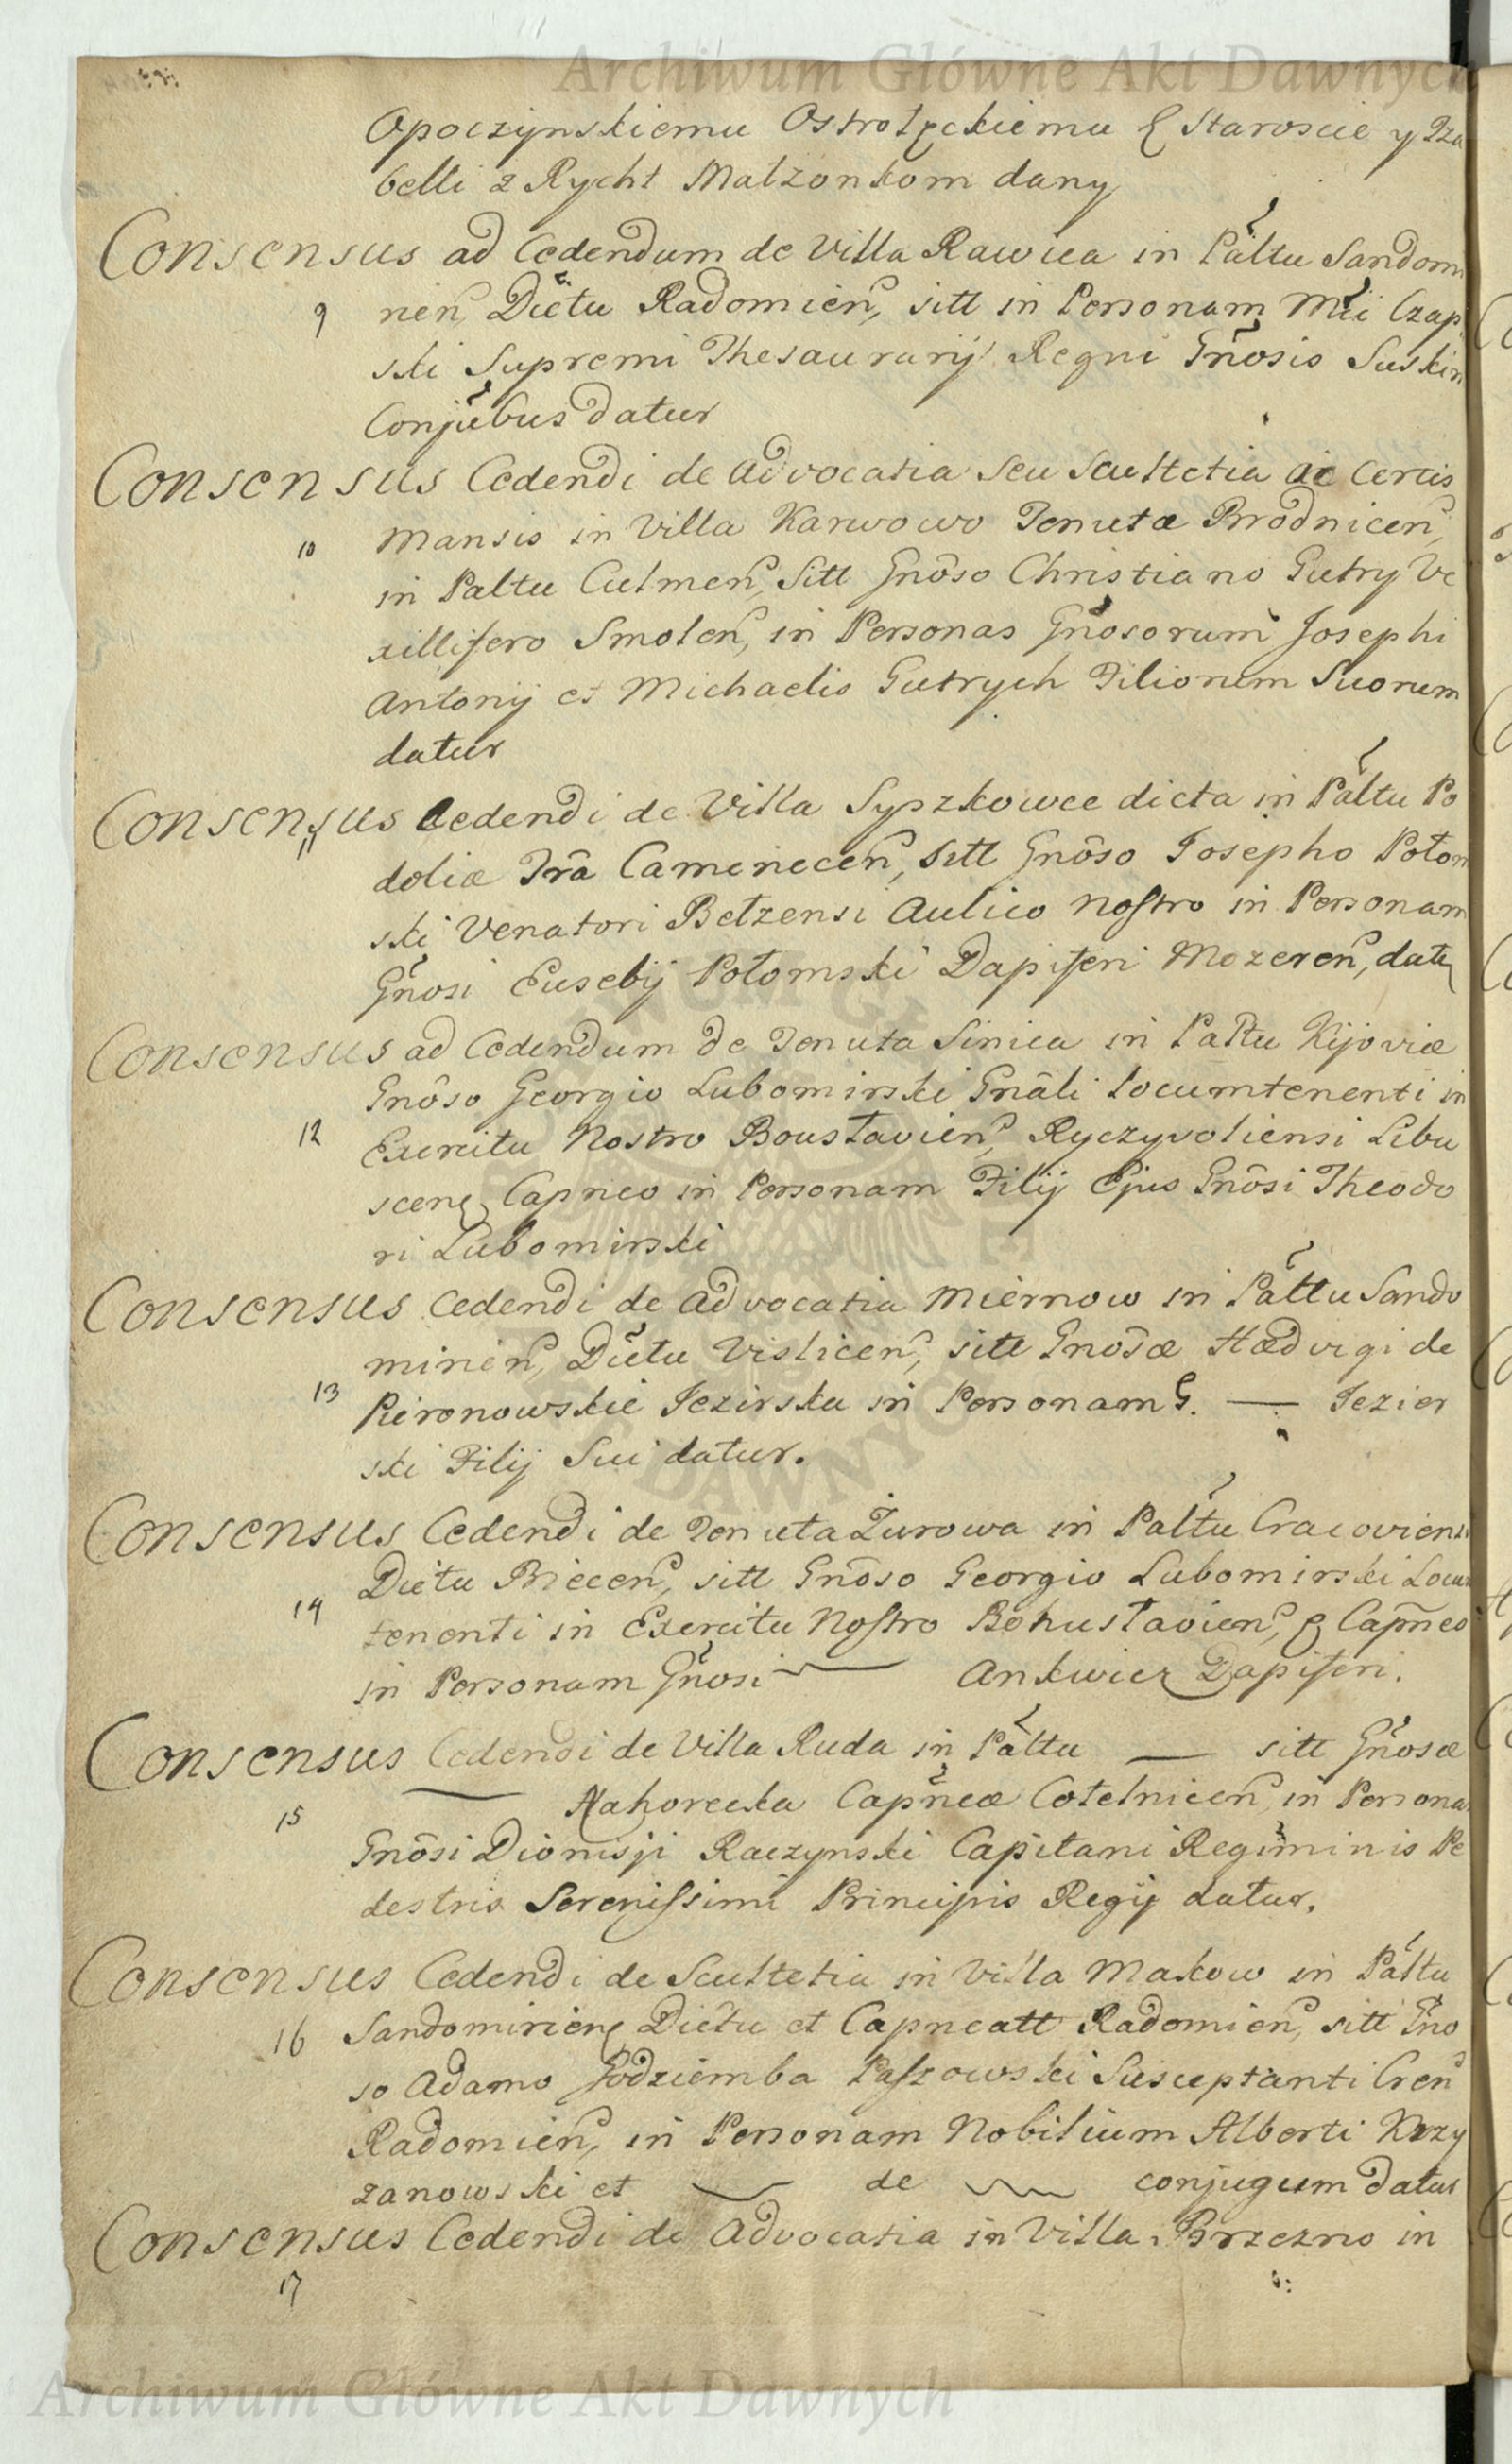 Archiwum Główne Akt Dawnych
Opoczynskiemu Ostrołęckiemu & Staroscie y Iza
belli z Rycht Małzonkom dany
Consensus ad Cedendum de Villa Rawica in Pałtu Sandom
9 rien, Dictu Radomien, sitt in Personam Mci Czap
ski Supremi Thesaurarij Regni Gnosis Suskim
Conjubus datur
Consensus Cedendi de Advocatia seu Scultetia ac certis
10 Mansis in Villa Karwowo Tenutæ Brodnicen,
in Paltu Culmen, Sitt Gnoso Christiano Gutry Ve
xillifero Smolen, in Personas Gnosorum Josephi
Antonij et Michaelis Gutrych Filiorum Suorum
datur
Consensus Cedendi de Villa Sypzkowce dicta in Paltu Po
11 doliæ Tra Camenecen, sitt Gnoso Josepho Potom
ski Venatori Betzensi Aulico Nostro in Personam
Gnosi Eusebij Potomski Dapiferi Mozeren, datu
Consensus ad Cedendum de Tenuta Sinica in Paltu Kijoviæ
Gnoso Georgio Lubomirski Gnali locumtenenti in
12 Exercitu Nostro Bousłavien, Ryczyvoliensi Libu
scen, Capneo in Personam Filij Ejus Gnosi Theodo
ri Lubomirski
Consensus Cedendi de Advocatia Miernow in Pałtu Sando
mirien, Dictu Vislicen, sitt Gnosæ Hædvigi de
13 Pieronowskie Jezirska in Personam G. — Jezier
ski Filij Sui datur.
Consensus Cedendi de Tenuta Żurowa in Paltu Cracoviensi
Dictu Biecen, sitt Gnoso Georgio Lubomirski Locum
14 tenenti in Exercitu Nostro Bohusłavien, & Capneo
in Personam Gnosi — Ankwicz Dapiferi.
Consensus Cedendi de Villa Ruda in Pałtu — sitt Gnosæ
— Nahorecka Capneæ Cotelnicen in Persona
15 Gnosi Dionisji Raczynski Capitani Regiminis Pe
destris Serenissimi Principis Regij datur.
Consensus Cedendi de Scultetia in Villa Makow in Pałtu
16 Sandomirien, Dictu et Capneatt Radomien, sitt Gno
so Adamo Godziemba Paszowski Susceptanti Cren
Radomien, in Personam Nobilium Alberti Krzy
zanowski et — de — conjugum datur
Consensus Cedendi de Advocatia in Villa Brzezno in
17
Archiwum Główne Akt Dawnych